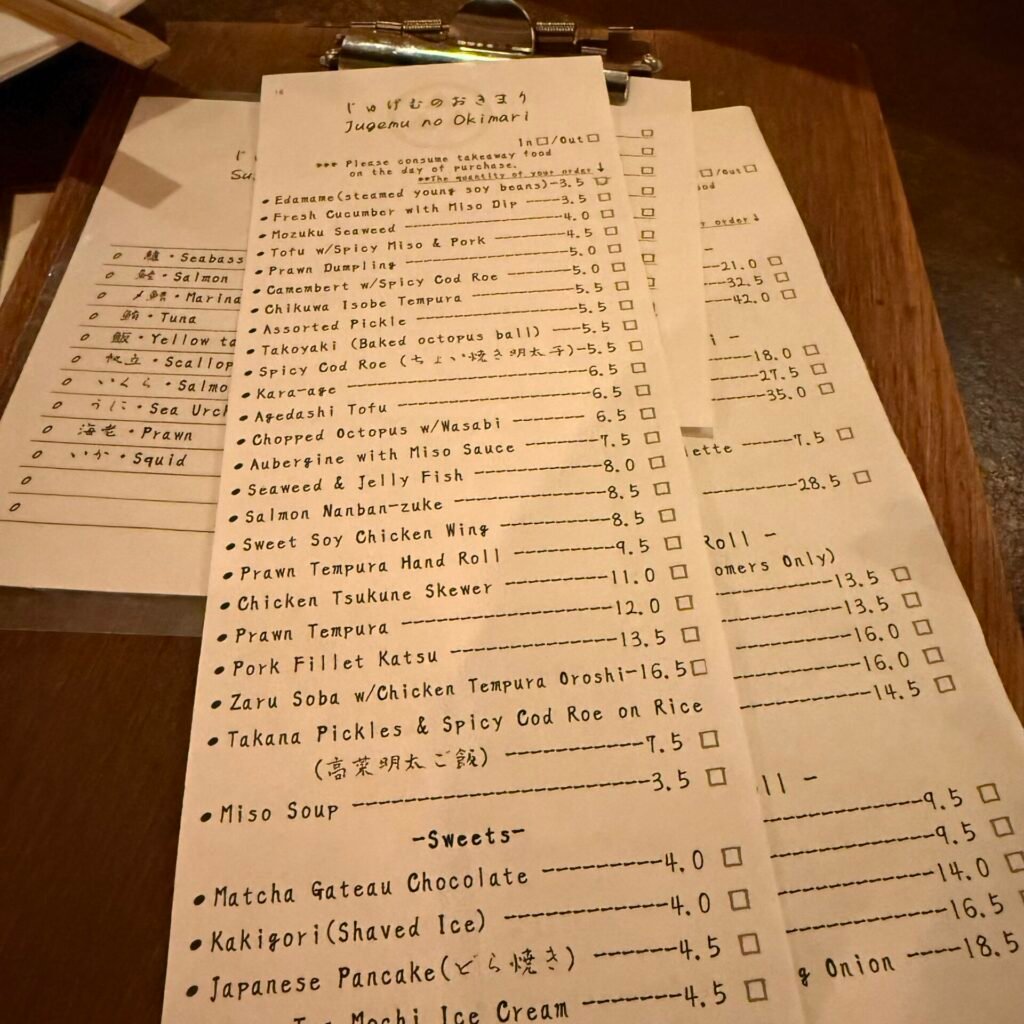 じゅげむのおきまり
Jugemu no Okimari
In□/Out□
*** Please consume takeaway food
on the day of purchase.
**The quantity of your order↓
• Edamame(steamed young soy beans)-3.5 □
• Fresh Cucumber with Miso Dip ----3.5 □
• Mozuku Seaweed ----4.0 □
• Tofu w/Spicy Miso & Pork ----4.5 □
• Prawn Dumpling ----5.0 □
• Camembert w/Spicy Cod Roe ----5.0 □
• Chikuwa Isobe Tempura ----5.5 □
• Assorted Pickle ----5.5 □
• Takoyaki (Baked octopus ball) ---5.5 □
• Spicy Cod Roe (ちょい焼き明太子)-5.5 □
• Kara-age ----6.5 □
• Agedashi Tofu ----6.5 □
• Chopped Octopus w/Wasabi ---- 6.5 □
• Aubergine with Miso Sauce ----7.5 □
• Seaweed & Jelly Fish ----8.0 □
• Salmon Nanban-zuke ----8.5 □
• Sweet Soy Chicken Wing ----8.5 □
• Prawn Tempura Hand Roll ----9.5 □
• Chicken Tsukune Skewer ----11.0 □
• Prawn Tempura ----12.0 □
• Pork Fillet Katsu ----13.5 □
• Zaru Soba w/Chicken Tempura Oroshi-16.5□
• Takana Pickles & Spicy Cod Roe on Rice
(高菜明太ご飯) ----7.5 □
• Miso Soup ----3.5 □
-Sweets-
• Matcha Gateau Chocolate ----4.0 □
• Kakigori(Shaved Ice) ----4.0 □
• Japanese Pancake(どら焼き) ----4.5 □
Mochi Ice Cream ----4.5 □
Su
鱸・Seabass
鮭・Salmon
〆鯖・Marina
鮪・Tuna
飯・Yellow ta
帆立・Scallop
いくら・Salmo
うに・Sea Urch
海老・Prawn
いか・Squid
□/Out□
order↓
--21.0 □
--32.5 □
--42.0 □
i -
----18.0 □
----27.5 □
----35.0 □
lette ----7.5 □
----28.5 □
Roll -
omers Only)
----13.5 □
----13.5 □
----16.0 □
----16.0 □
----14.5 □
ll -
----9.5 □
----9.5 □
----14.0 □
----16.5 □
g Onion ---18.5